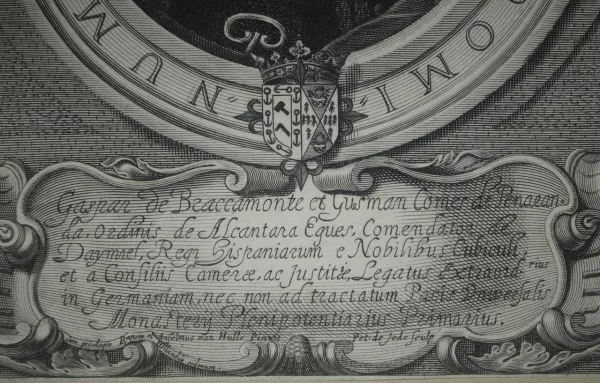 NUM DOMI
Gaspar de Braccamonte et Gusman Comes de Penaran-
da, Ordinis de Alcantara Eques, Comendator de
Daymiel, Regi Hispaniarum e Nobilibus Cubiculi
et a Consiliis Cameræ, ac Justitiæ, Legatus Extraord.rius
in Germaniam, nec non ad tractatum Pacis Universalis
Monasterij Plenipotentiarius Primarius.
Anselmus van Hulle Pinxit Pet de Jode sculp